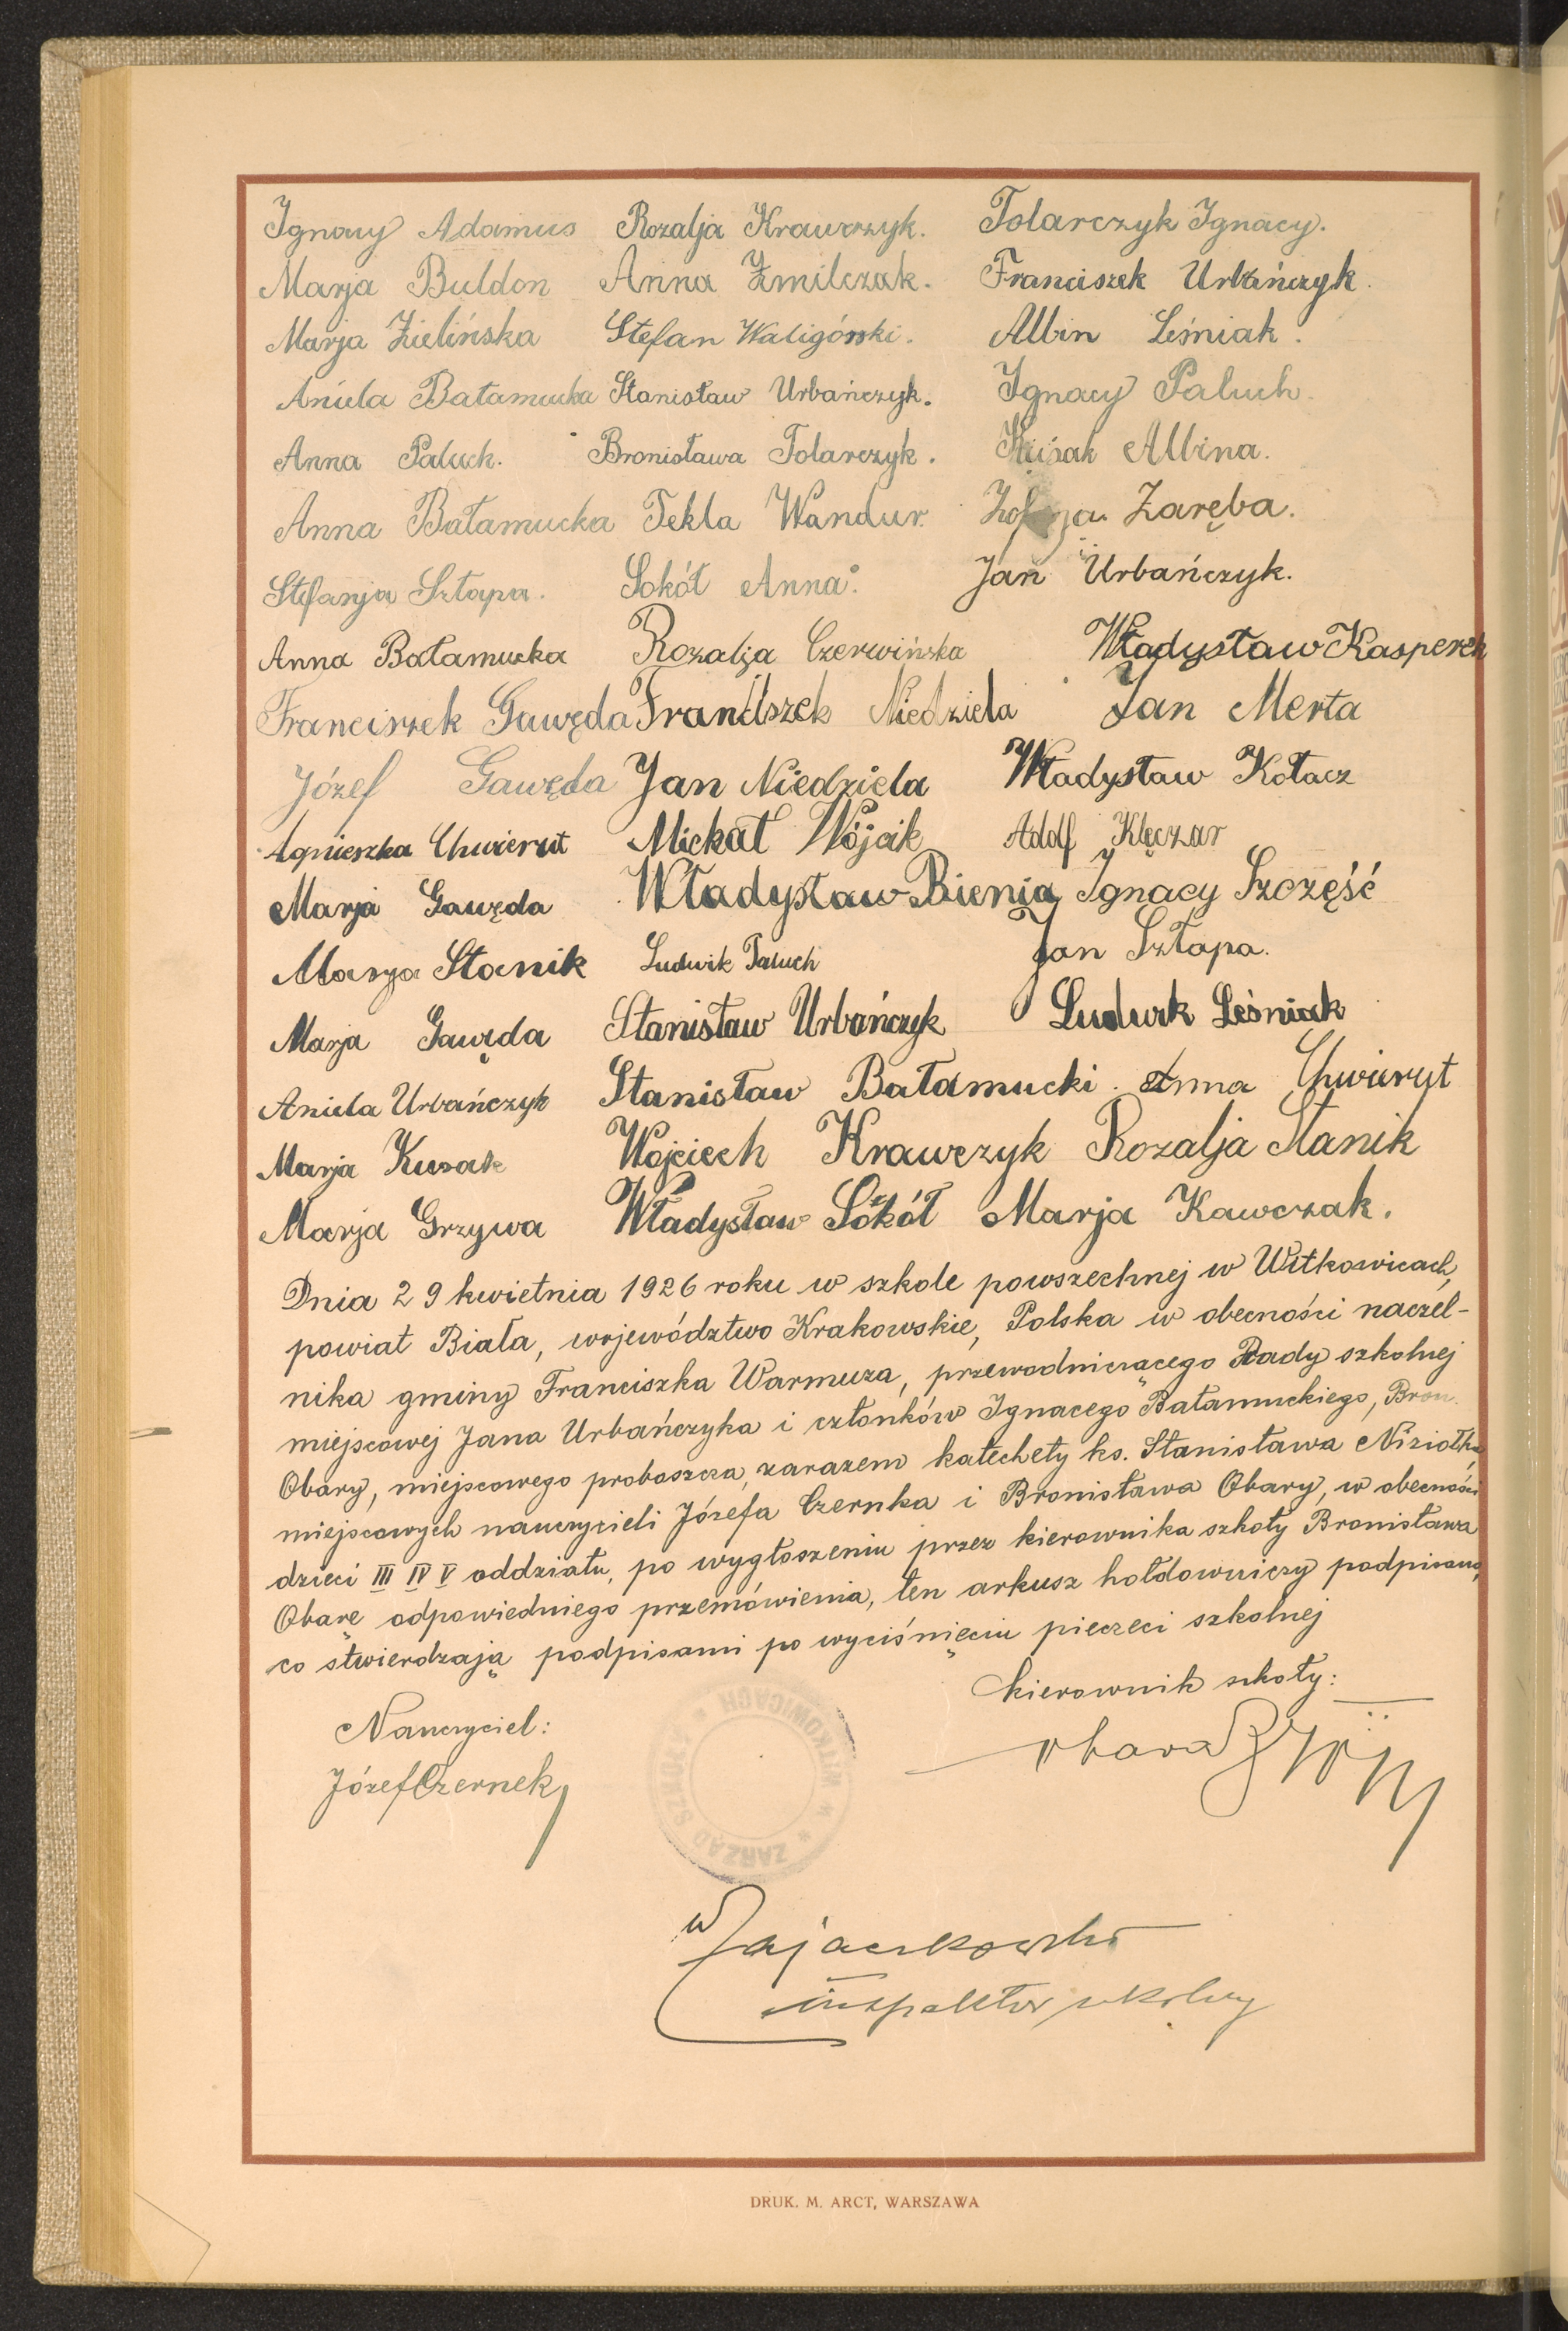 Ignacy Adamus Rozalja Krawczyk. Tolarczyk Ignacy.
Marja Buldon Anna Żmilczak. Franciszek Urbańczyk.
Marja Zielińska Stefan Waligórski. Albin Leśniak.
Aniela Bałamucka Stanisław Urbańczyk. Ignacy Paluch.
Anna Paluch. Bronisława Tolarczyk. Albina.
Anna Bałamucka Tekla Wandur. Zofja Zaręba.
Stefanja Sztapa. Sokół Anna. Jan Urbańczyk.
Anna Bałamucka Rozalja Czerwińska Władysław Kasperek
Franciszek Gawęda Franciszek Niedziela Jan Merta
Józef Gawęda Jan Niedziela Władysław Kołacz
Agnieszka Chwierut Michał Wójcik Adolf Klęczar
Marja Gawęda Władysław Bienia Ignacy Szczęść
Marja Stanik Ludwik Paluch Jan Sztapa.
Marja Gawęda Stanisław Urbańczyk Ludwik Leśniak
Aniela Urbańczyk Stanisław Bałamucki. Anna Chwieryt
Marja Kusak Wojciech Krawczyk Rozalja Stanik
Marja Grzywa Władysław Sokół Marja Kawczak.
Dnia 29 kwietnia 1926 roku w szkole powszechnej w Witkowicach,
powiat Biała, województwo Krakowskie, Polska w obecności naczel-
nika gminy Franciszka Warmuza, przewodniczącego Rady szkolnej
miejscowej Jana Urbańczyka i członków Ignacego Bałamuckiego, Bron.
Obary, miejscowego proboszcza, zarazem katechety ks. Stanisława Niziołka,
miejscowych nauczycieli Józefa Czernka i Bronisława Obary, w obecności
dzieci III IV V oddziału, po wygłoszeniu przez kierownika szkoły Bronisława
Obarę odpowiedniego przemówienia, ten arkusz hołdowniczy podpisano,
co stwierdzają podpisami po wyciśnięciu pieczęci szkolnej
kierownik szkoły:
Nauczyciel:
Obara
Józef Czernek
ZARZĄD SZKOŁY * W WITKOWICACH *
W Zajączkowski
inspektor szkolny
DRUK. M. ARCT, WARSZAWA